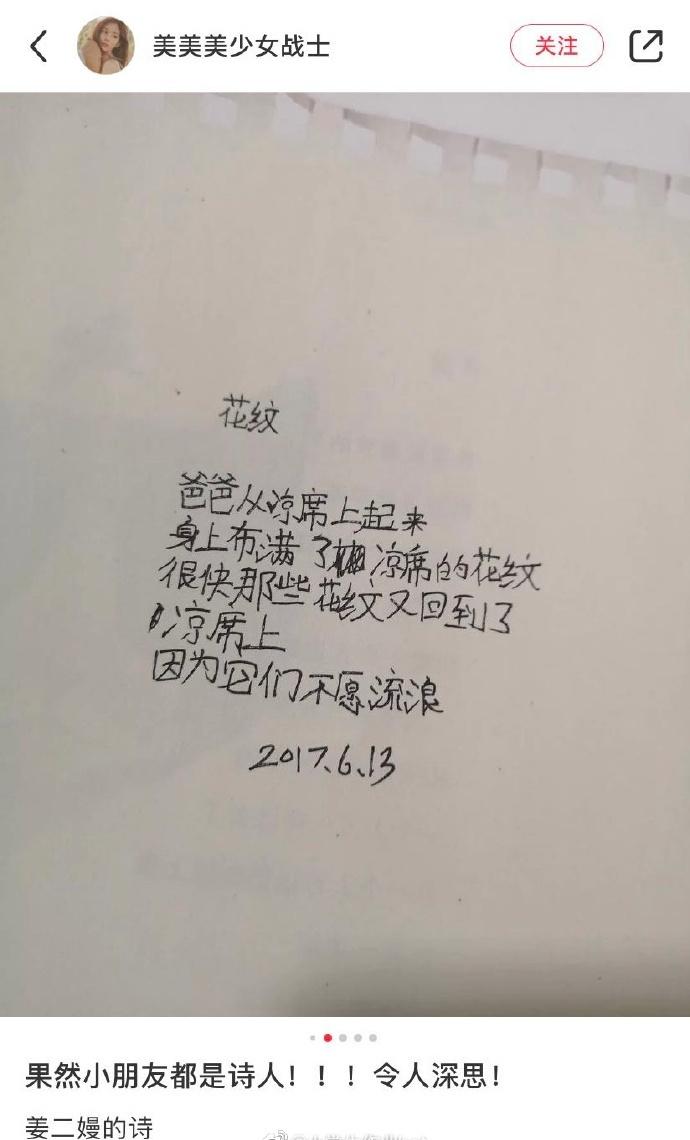 美美美少女战士
关注
花纹
爸爸从凉席上起来
身上布满了凉席的花纹
很快那些花纹又回到了
凉席上
因为它们不愿流浪
2017.6.13
果然小朋友都是诗人！！！令人深思！
姜二嫚的诗